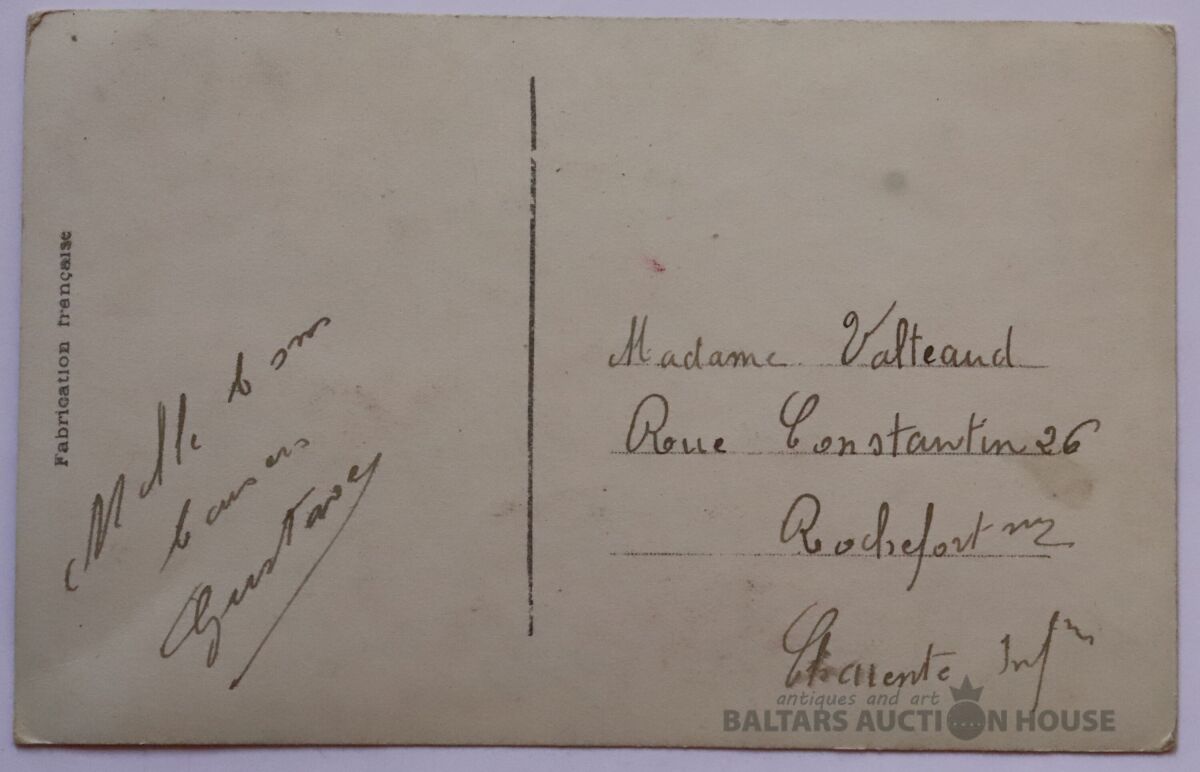 Fabrication française
Mille bons
baisers
Gustave
Madame Valteaud
Rue Constantin 26
Rochefort
Charente Infre
antiques and art
BALTARS AUCTION HOUSE